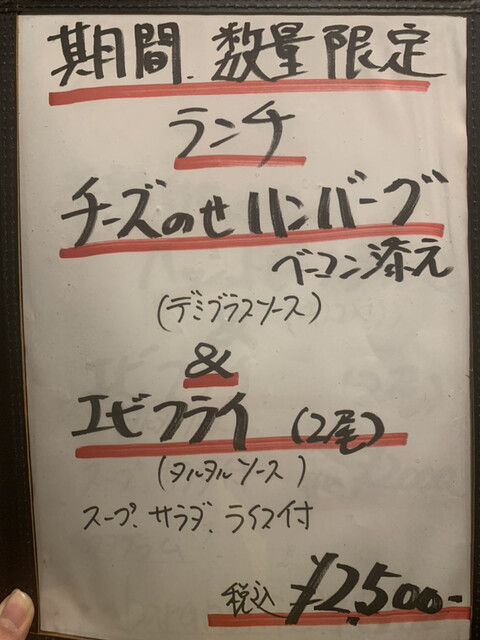 期間、数量限定
ランチ
チーズのせハンバーグ
ベーコン添え
(デミグラスソース)
&
エビフライ(2尾)
(タルタルソース)
スープ、サラダ、ライス付
税込 ¥2,500-